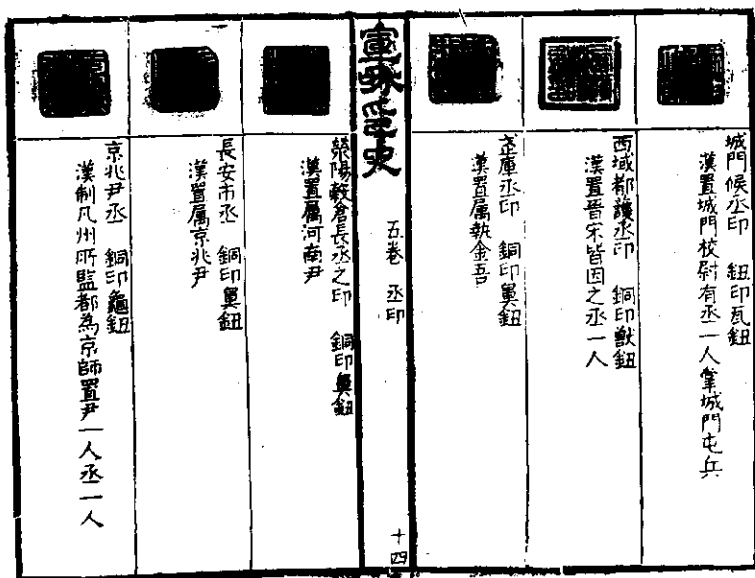 城門候丞印　鈕印瓦鈕
漢置城門校尉有丞一人掌城門屯兵
西域都護丞印　銅印獸鈕
漢置晉宋皆因之丞一人
武庫丞印　銅印鼻鈕
漢置属執金吾
宣和印史
五卷　丞印
十四
滎陽敖倉長丞之印　銅印鼻鈕
漢置属河南尹
長安市丞　銅印鼻鈕
漢置属京兆尹
京兆尹丞　銅印龜鈕
漢制凡州所監都為京師置尹一人丞一人